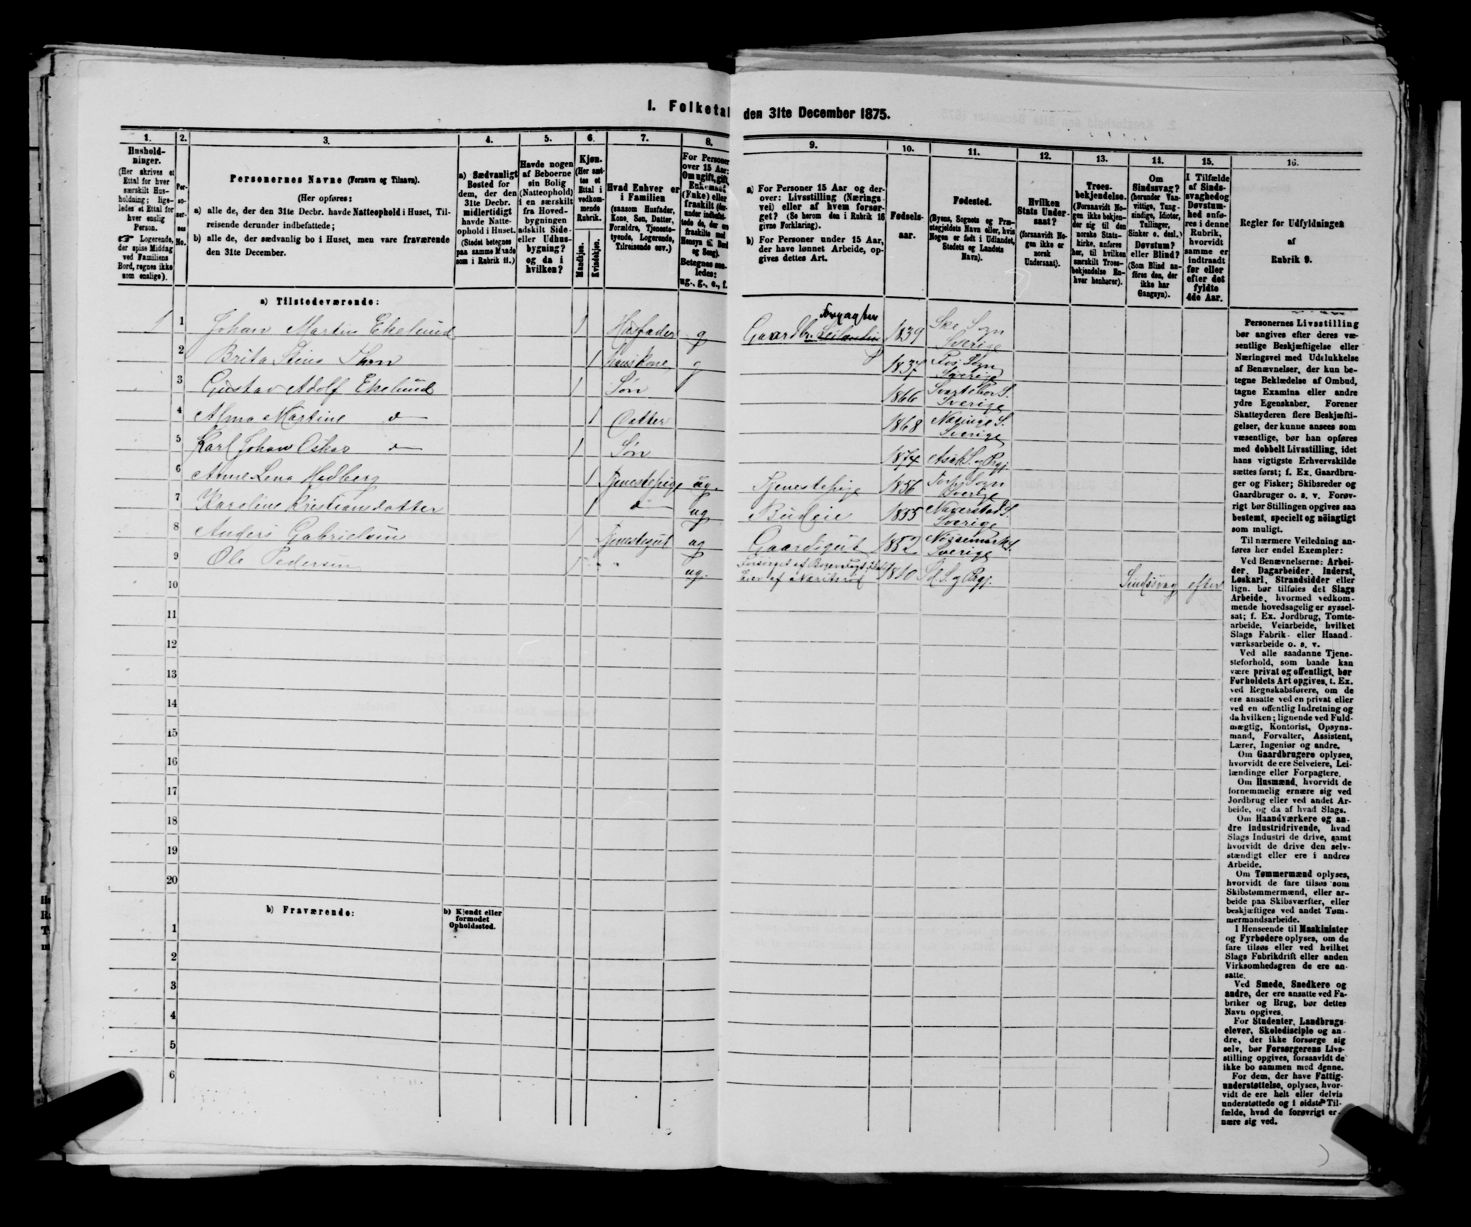 I. Folketal
den 31te December 1875.
1.
Hushold-
ninger.
(Her skrives et
Ettal for hver
særskilt Hus-
holdning; lige-
ledes et Ettal for
hver enslig
Person.
☞ Logerende,
der spise Middag
ved Familiens
Bord, regnes ikke
som enslige).
2.
Per-
so-
ner-
nes
No.
3.
Personernes Navne (Fornavn og Tilnavn).
(Her opføres:
a) alle de, der den 31te Decbr. havde Natteophold i Huset, Til-
reisende derunder indbefattede;
b) alle de, der sædvanlig bo i Huset, men vare fraværende
den 31te December.
4.
a) Sædvanligt
Bosted for
dem, der den
31te Decbr.
midlertidigt
havde Natte-
ophold i Huset.
(Stedet betegnes
paa samme Maade
som i Rubrik 11.)
5.
Havde nogen
af Beboerne
sin Bolig
(Natteophold)
i en særskilt
fra Hoved-
bygningen
adskilt Side-
eller Udhus-
bygning?
og da i
hvilken?
6.
Kjøn.
(Her sæt-
tes et
Ettal i
vedkom-
mende
Rubrik.
Mandkjøn.
Kvindekjøn.
7.
Hvad Enhver er
i Familien
(saasom Husfader,
Kone, Søn, Datter,
Forældre, Tjeneste-
tyende, Logerende,
Tilreisende osv.)
8.
For Personer
over 15 Aar:
Om ugift, gift,
Enkemand
(Enke) eller
fraskilt
Betegnes saa-
ledes:
ug., g., e., f.
9.
a) For Personer 15 Aar og der-
over: Livsstilling (Nærings-
vei) eller af hvem forsør-
get? (Se herom den i Rubrik 16
givne Forklaring).
b) For Personer under 15 Aar,
der have lønnet Arbeide, op-
gives dettes Art.
10.
Fødsels-
aar.
11.
Fødested.
(Byens, Sognets og Præ-
stegjeldets Navn eller, hvis
Nogen er født i Udlandet,
Stedets og Landets
Navn).
12.
Hvilken
Stats Under-
saat?
(forsaavidt No-
gen ikke er
norsk
Undersaat).
13.
Troes-
bekjendelse.
(Forsaavidt No-
gen ikke bekjen-
der sig til den
norske Stats-
kirke, anføres
her, til hvilken
særskilt Troes-
bekjendelse Ro-
hver henhører).
14.
Om
Sindssvag?
(herunder Van-
vittige, Tung-
sindige, Idioter,
Tullinger,
Sinker o. desl.)
Døvstum?
eller Blind?
(Som Blind an-
føres den, der
ikke har
Gangsyn).
15.
I Tilfælde
af Sinds-
svaghed og
Døvstum-
hed anfø-
res i denne
Rubrik,
hvorvidt
samme er
indtraadt
før eller
efter det
fyldte
4de Aar.
16.
Regler for Udfyldningen
af
Rubrik 9.
a) Tilstedeværende:
1 1 Johan Martin Ekelund 1 Husfader g Gaardbr. Forpagter 1839 Ske Sogn Sverige
2 Brita Stina 1 Huuskone g 1837 Sogn Sverige
3 Gustav Adolf Ekelund 1 Søn 1866 S. Sverige
4 Alma Martine do 1 Datter 1868 S. Sverige
5 Karl Johan Oskar do 1 Søn 1874 Asak S. og Pgj.
6 Anne Lena Hedberg 1 Tjenestepige ug. Tjenestepige 1856 Sogn Sverige
7 Karoline Kristiansdotter 1 do ug Budeie 1855 Naverstad S. Sverige
8 Anders Gabrielsen Tjenestegut ug Gaardsgut 1852 S. Sverige
9 Ole Pedersen 1 " ug. 1810 S. og Pgj. Sindssvag efter
10
11
12
13
14
15
16
17
18
19
20
b) Fraværende:
b) Kjendt eller
formodet
Opholdssted.
1
2
3
4
5
6
Personernes Livsstilling
bør angives efter deres væ-
sentlige Beskjæftigelse eller
Næringsvei med Udelukkelse
af Benævnelser, der kun be-
tegne Beklædelse af Ombud,
tagne Examina eller andre
ydre Egenskaber. Forener
Skatteyderen flere Beskjæfti-
gelser, der kunne ansees som
væsentlige, bør han opføres
med dobbelt Livsstilling, idet
hans vigtigste Erhvervskilde
sættes først; f. Ex. Gaardbru-
ger og Fisker; Skibsreder og
Gaardbruger o. s. v. Forøv-
rigt bør Stillingen opgives saa
bestemt, specielt og nøiagtigt
som muligt.
Til nærmere Veiledning an-
føres her endel Exempler:
Ved Benævnelserne: Arbei-
der, Dagarbeider, Inderst,
Løskarl, Strandsidder eller
lign. bør tilføies det Slags
Arbeide, hvormed vedkom-
mende hovedsagelig er syssel-
sat; f. Ex. Jordbrug, Tomte-
arbeide, Veiarbeide, hvilket
Slags Fabrik- eller Haand-
værksarbeide o. s. v.
Ved alle saadanne Tjene-
steforhold, som baade kan
være privat og offentligt, bør
Forholdets Art opgives, t. Ex.
ved Regnskabsførere, om de
ere ansatte ved en privat eller
ved en offentlig Indretning og
da hvilken; lignende ved Fuld-
mægtig, Kontorist, Opsyns-
mand, Forvalter, Assistent,
Lærer, Ingeniør og andre.
Om Gaardbrugere oplyses,
hvorvidt de ere Selveiere, Lei-
lændinge eller Forpagtere.
Om Husmænd, hvorvidt de
fornemmelig ernære sig ved
Jordbrug eller ved andet Ar-
beide, og da af hvad Slags.
Om Haandværkere og an-
dre industridrivende, hvad
Slags Industri de drive, samt
hvorvidt de drive den selv-
stændigt eller ere i andres
Arbeide.
Om Tømmermænd oplyses,
hvorvidt de fare tilsøs som
Skibstømmermænd, eller ar-
beide paa Skibsværfter, eller
beskjæftiges ved andet Tøm-
mermandsarbeide.
I Henseende til Maskinister
og Fyrbødere oplyses, om de
fare tilsøs eller ved hvilket
Slags Fabrikdrift eller anden
Virksomhedsgren de ere an-
satte.
Ved Smede, Snedkere og
andre, der ere ansatte ved Fa-
briker og Brug, bør dettes
Navn opgives.
For Studenter, Landbrugs-
elever, Skoledisciple og an-
dre, der ikke forsørge sig
selv, bør Forsørgerens Livs-
stilling opgives, forsaavidt de
ikke bo sammen med denne.
For dem, der have Fattig-
understøttelse, oplyses, hvor-
vidt de ere helt eller delvis
understøttede og i sidste Til-
fælde, hvad de forøvrigt er-
nære sig ved.